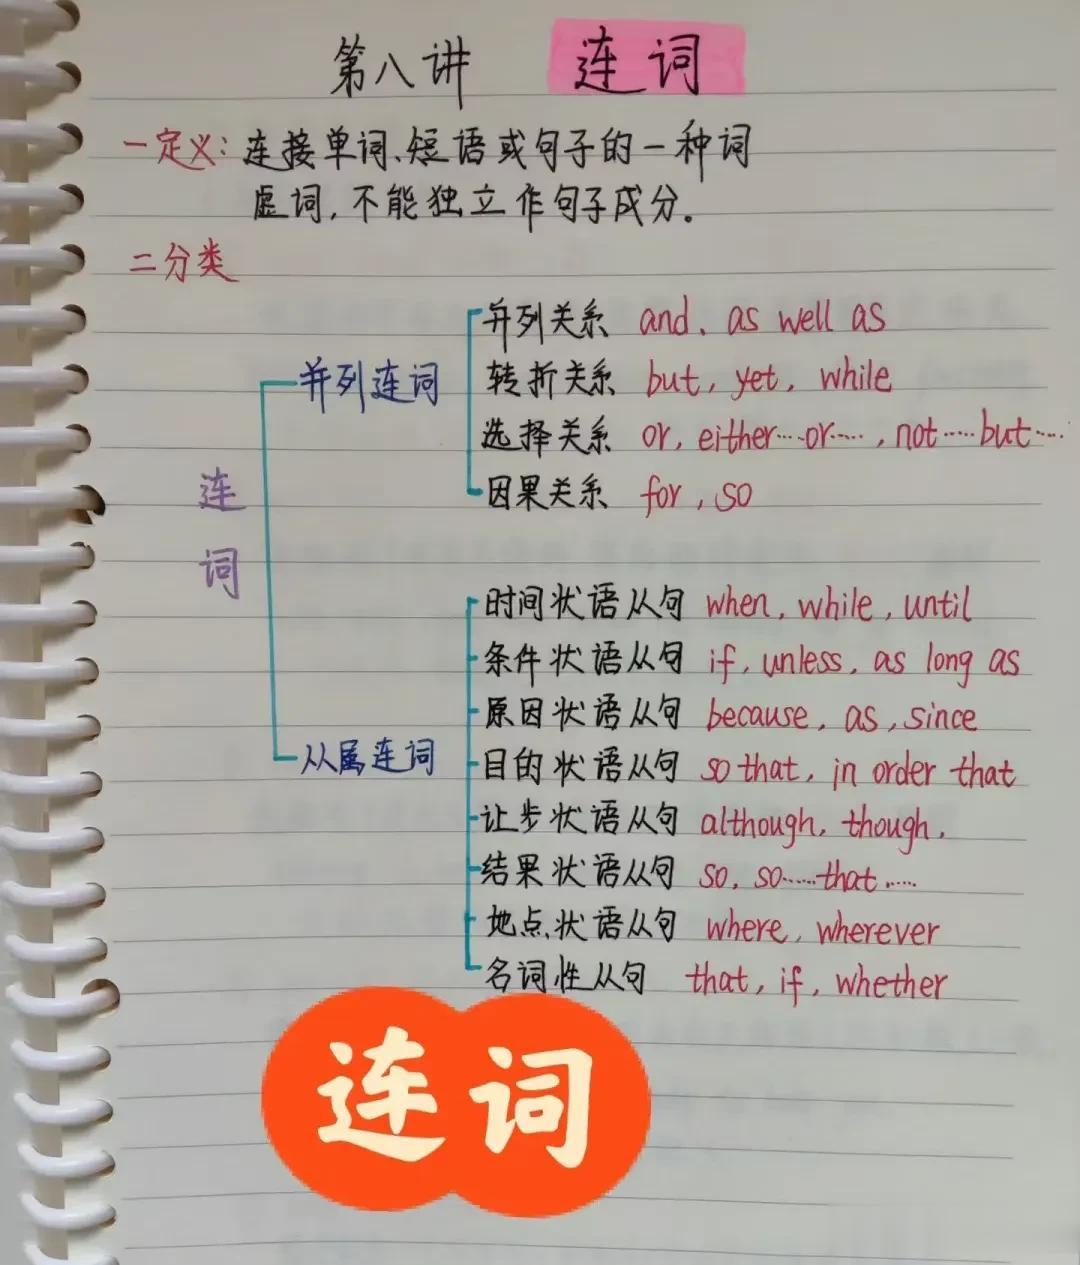 第八讲 连词
一定义：连接单词、短语或句子的一种词
虚词，不能独立作句子成分。
二分类
连词
并列连词
并列关系 and、as well as
转折关系 but, yet, while
选择关系 or, either……or……, not……but……
因果关系 for, so
从属连词
时间状语从句 when, while, until
条件状语从句 if, unless, as long as
原因状语从句 because, as, since
目的状语从句 so that, in order that
让步状语从句 although, though,
结果状语从句 so, so……that……
地点状语从句 where, wherever
名词性从句 that, if, whether
连词